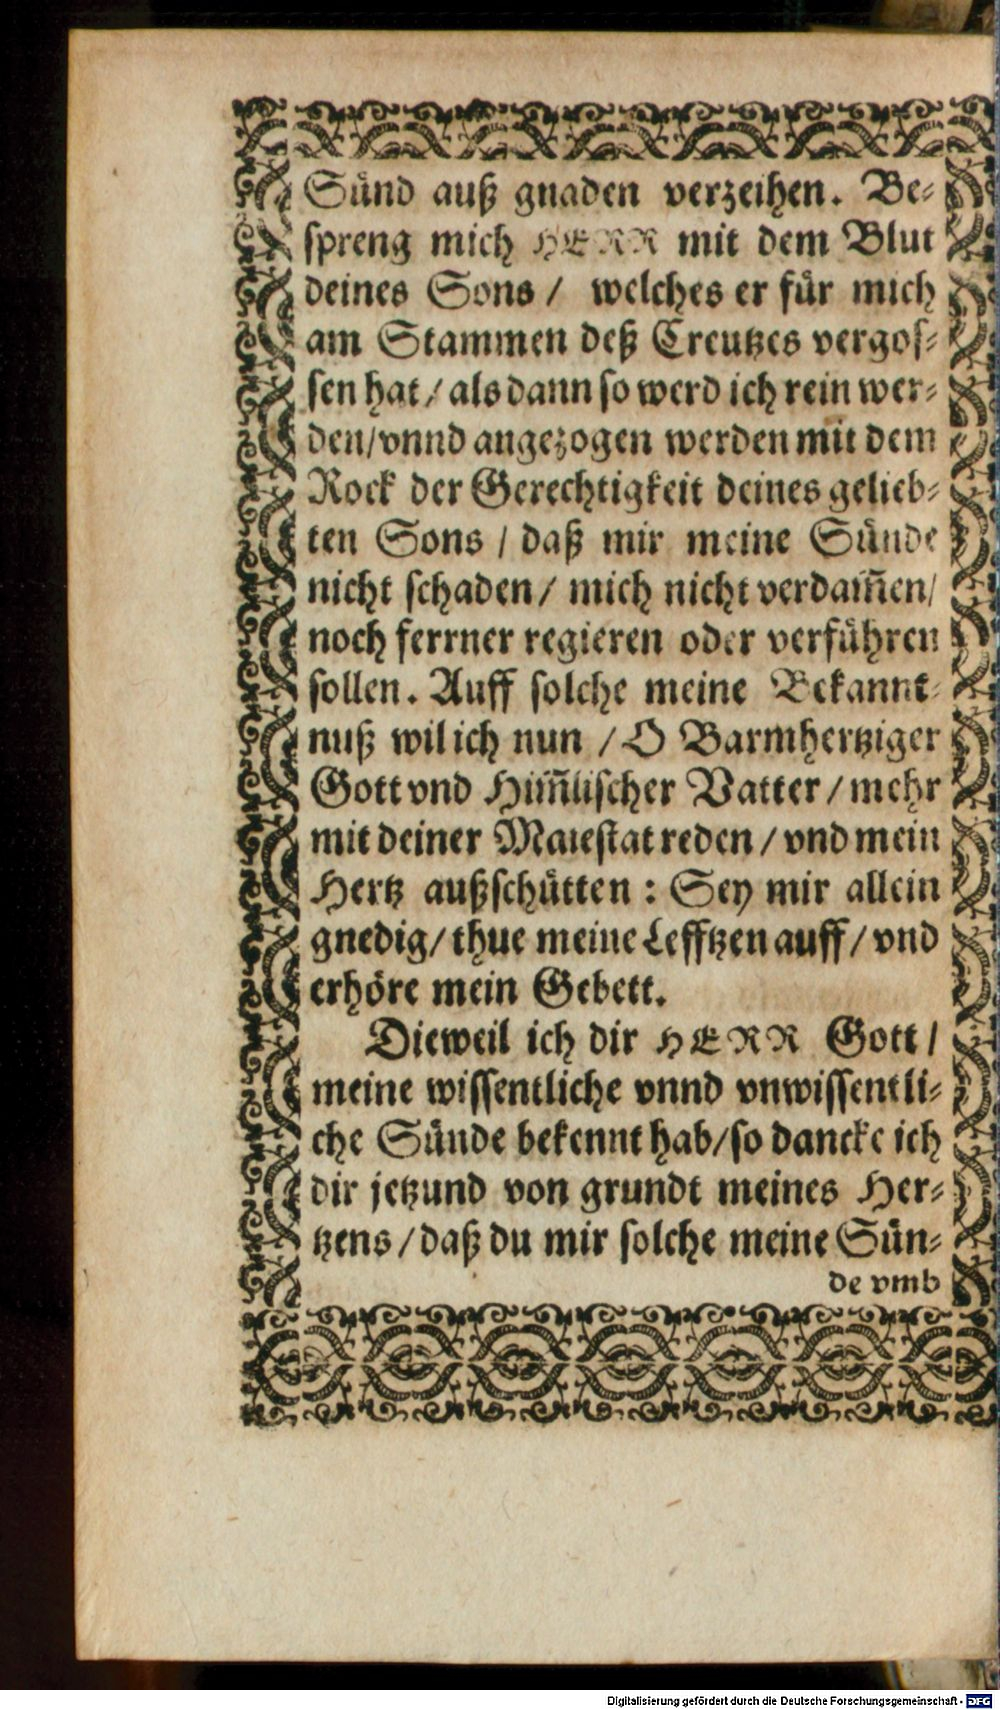 Sünd auß gnaden verzeihen. Be⸗
spreng mich HERR mit dem Blut
deines Sons / welches er für mich
am Stammen deß Creutzes vergos⸗
sen hat / als dann so werd ich rein wer⸗
den / vnnd angezogen werden mit dem
Rock der Gerechtigkeit deines gelieb⸗
ten Sons / daß mir meine Sünde
nicht schaden / mich nicht verdam̃en /
noch ferrner regieren oder verführen
sollen. Auff solche meine Bekannt⸗
nuß wil ich nun / O Barmhertziger
Gott vnd Him̃lischer Vatter / mehr
mit deiner Maiestat reden / vnd mein
Hertz außschütten : Sey mir allein
gnedig / thue meine Lefftzen auff / vnd
erhöre mein Gebett.
Dieweil ich dir HERR Gott /
meine wissentliche vnnd vnwissentli⸗
che Sünde bekennt hab / so dancke ich
dir jetzund von grundt meines Her⸗
tzens / daß du mir solche meine Sün⸗
de vmb
Digitalisierung gefördert durch die Deutsche Forschungsgemeinschaft - DFG